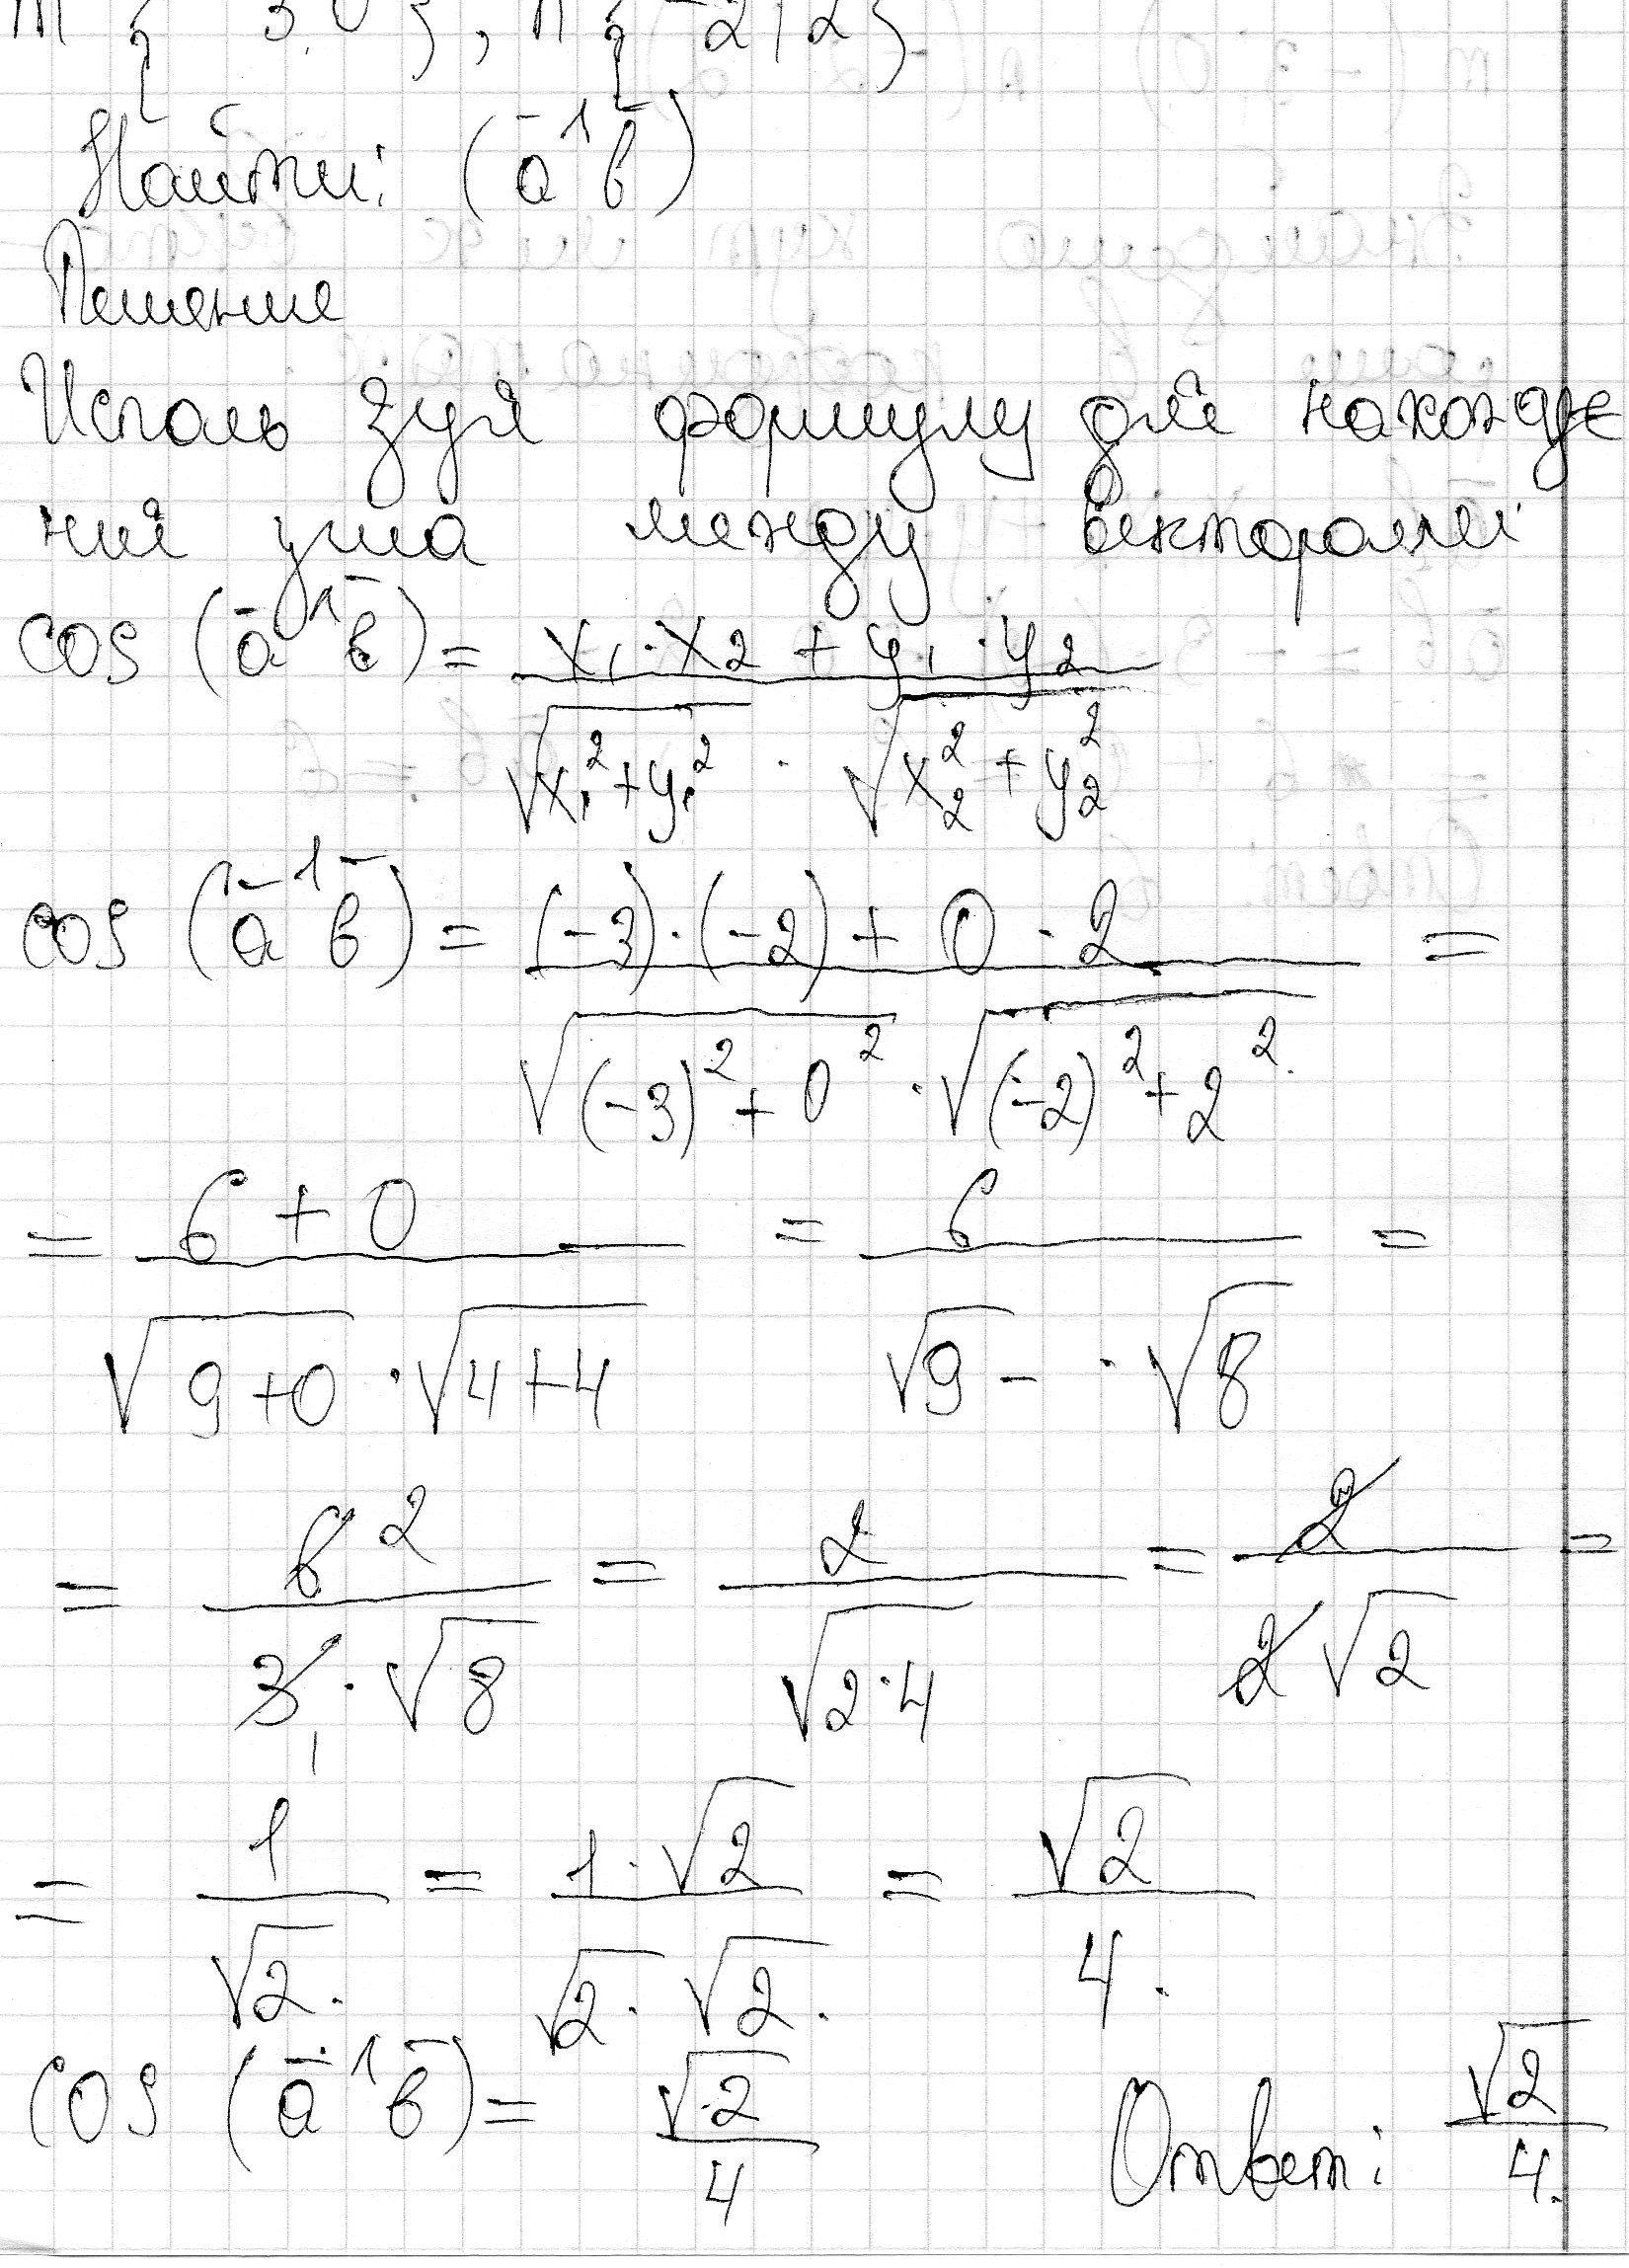 m { 3.0}, n {-2;2}
Найти: (a^b)
Решение
Исполь зуя формулу для нахожде
ния угла между векторами
cos (a^b) = x₁·x₂ + y₁·y₂ / √x₁²+y₁² · √x₂²+y₂²
cos (a^b) = (-3)·(-2) + 0·2 / √(-3)²+0² · √(-2)²+2² =
= 6+0 / √9+0 · √4+4 = 6 / √9 - · √8 =
= 6 2 / 3 1 · √8 = 2 / √2·4 = 2 / 2√2 =
= 1 / √2. = 1·√2 / √2·√2. = √2 / 4.
cos (a^b) = √2 / 4 Ответ: √2 / 4.